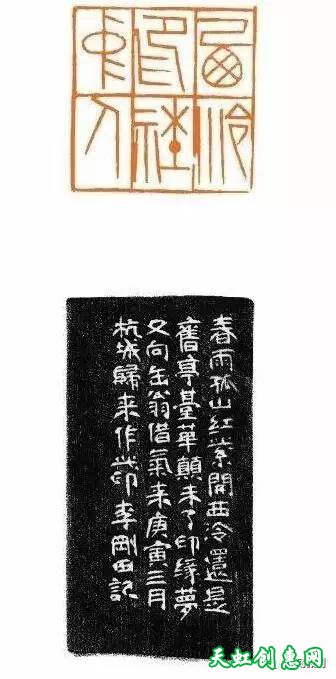 西泠
印社
中人
春雨孤山紅紫開西泠還是
舊亭臺華顛未了印緣夢
又向缶翁借氣来庚寅三月
杭城歸来作此印李剛田記
天虹创意网